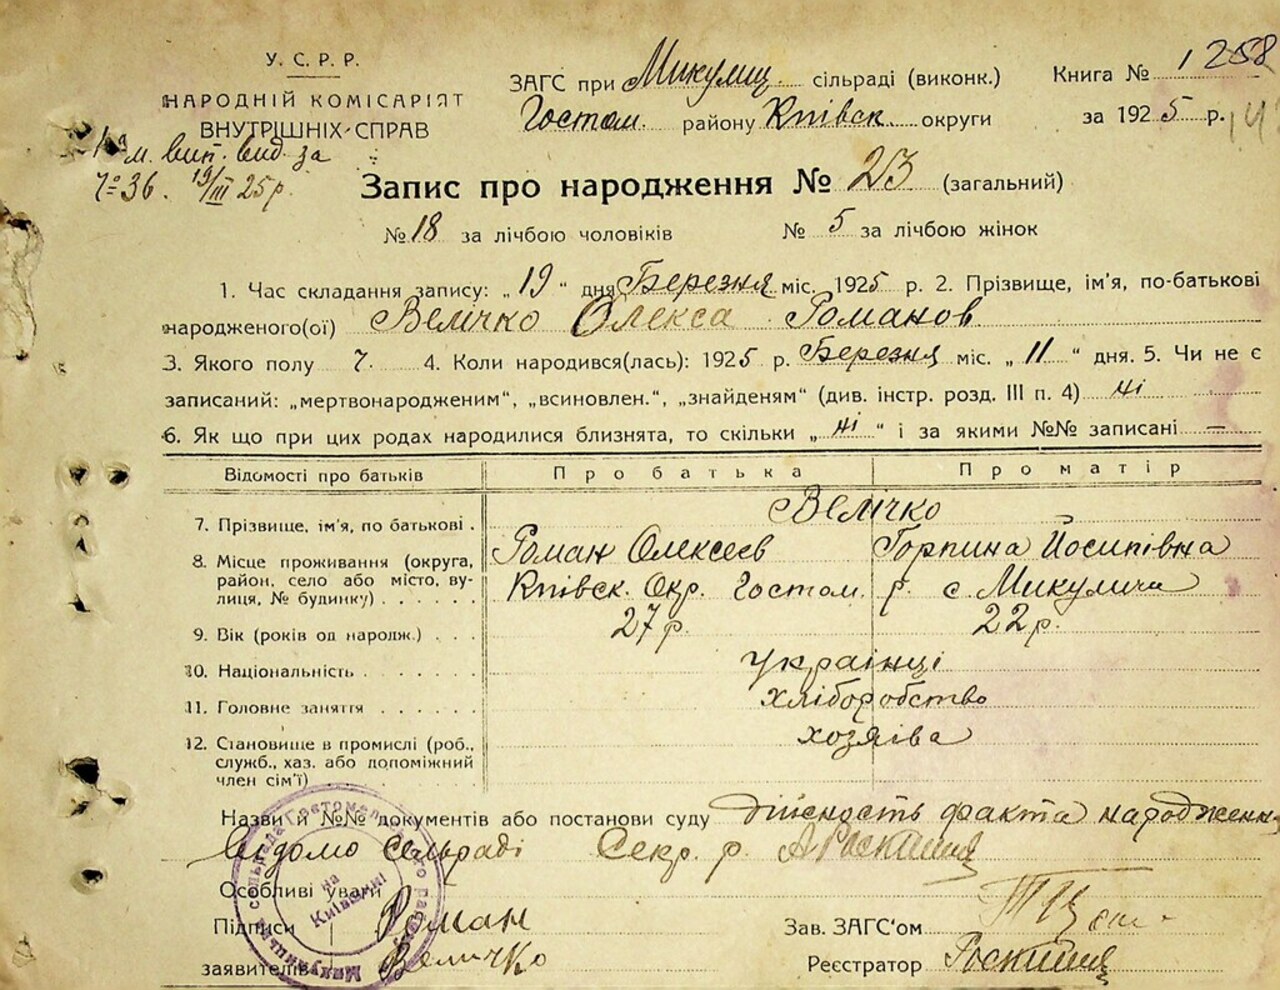 У. С. Р. Р.
НАРОДНІЙ КОМІСАРІЯТ
ВНУТРІШНІХ СПРАВ
м. вип. вид. за
№ 36. 19/III 25 р.
ЗАГС при Микулиц. сільраді (виконк.)
Гостом. району Київск. округи
Книга № 1258
за 1925 р. 14
Запис про народження № 23 (загальний)
№ 18 за лічбою чоловіків № 5 за лічбою жінок
1. Час складання запису: „19“ дня Березня міс. 1925 р. 2. Прізвище, ім'я, по-батькові
народженого(ої) Велічко Олекса Романов
3. Якого полу ч. 4. Коли народився(лась): 1925 р. Березня міс. „11“ дня. 5. Чи не є
записаний: „мертвонародженим“, „всиновлен.“, „знайденям“ (див. інстр. розд. III п. 4) ні
6. Як що при цих родах народилися близнята, то скільки „ні“ і за якими №№ записані —
Відомості про батьків Про батька Про матір
7. Прізвище, ім'я, по батькові. Велічко
Роман Олексеєв Горпина Йосипівна
8. Місце проживання (округа,
район, село або місто, ву-
лиця, № будинку) Київск. Окр. Гостом. р. с. Микуличи
9. Вік (років од народж.) 27 р. 22 р.
10. Національність українці
11. Головне заняття хліборобство
12. Становище в промислі (роб.,
служб., хаз. або допоміжний
член сім'ї) хозяіва
Назви й №№ документів або постанови суду дійсность факта народження
відомо сельраді Секр. р.
Особливі уваги
Підписи заявителів Роман
Величко
Зав. ЗАГС'ом
Реєстратор
на
Київщині